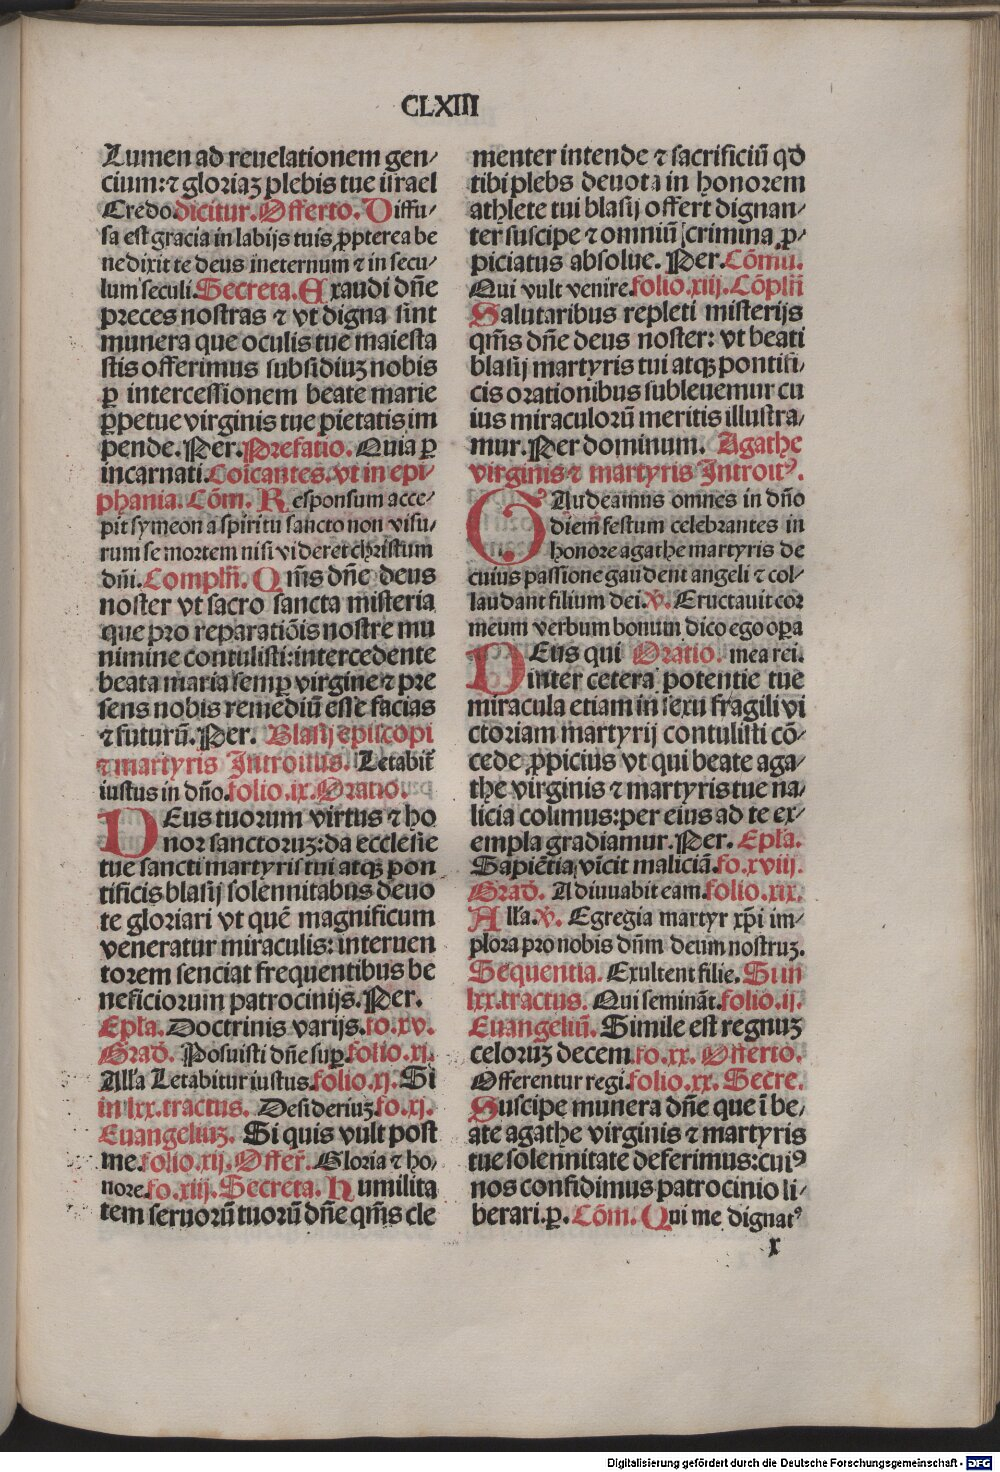 CLXIII
Lumen ad reuelationem gen/
cium: ⁊ gloriaʒ plebis tue iſrael
Credo. dicitur. Offerto. Diffu/
ſa eſt gracia in labijs tuis ꝓpterea be
nedixit te deus ineternum ⁊ in ſecu/
lum ſeculi. Secreta. Exaudi dñe
preces noſtras ⁊ vt digna ſint
munera que oculis tue maieſta
ſtis offerimus ſubſidiuʒ nobis
ꝑ interceſſionem beate marie
ꝑpetue virginis tue pietatis im
pende. Per. Prefatio. Quia ꝑ
incarnati. Coicantes. vt in epi/
phania. Cõm. Reſponſum acce/
pit ſymeon a ſpiritu ſancto non viſu/
rum ſe mortem niſi videret chriſtum
dñi. Complñ. Qm̃s dñe deus
noſter vt ſacro ſancta miſteria
que pro reparatiõis noſtre mu
nimine contuliſti: intercedente
beata maria ſemꝑ virgine ⁊ pre
ſens nobis remediũ eſſe facias
⁊ futurũ. Per. Blaſij epiſcopi
⁊ martyris Introitus. Letabit̃
iuſtus in dño. folio. ix. Oratio.
DEus tuorum virtus ⁊ ho
nor ſanctoruʒ: da eccleſie
tue ſancti martyris tui atqꝫ pon
tificis blaſij ſolennitabus deuo
te gloriari vt quẽ magnificum
veneratur miraculis: interuen
torem ſenciat frequentibus be
neficiorum patrocinijs. Per.
Epła. Doctrinis varijs. fo. xv.
Grad̃. Poſuiſti dñe ſuꝑ. folio. xj.
Alľa Letabitur iuſtus. folio. xj. Si
in lxx. tractus. Deſideriuʒ. fo. xj.
Euangeliuʒ. Si quis vult poſt
me. folio. xij. Offer̃. Gloria ⁊ ho/
nore. fo. xiij. Secreta. Humilita
tem ſeruorũ tuorũ dñe qm̃s cle
menter intende ⁊ ſacrificiũ qd̃
tibi plebs deuota in honorem
athlete tui blaſij offert dignan/
ter ſuſcipe ⁊ omniũ crimina ꝓ/
piciatus abſolue. Per. Cõmu.
Qui vult venire. folio. xiij. Cõplñ
Salutaribus repleti miſterijs
qm̃s dñe deus noſter: vt beati
blaſij martyris tui atqꝫ pontifi/
cis orationibus ſubleuemur cu
ius miraculorũ meritis illuſtra/
mur. Per dominum. Agathe
virginis ⁊ martyris Introitꝰ.
GAudeamus omnes in dño
diem feſtum celebrantes in
honore agathe martyris de
cuius paſſione gaudent angeli ⁊ col/
laudant filium dei. v̄. Eructauit cor
meum verbum bonum dico ego oꝑa
DEus qui Oratio. mea rei.
inter cetera potentie tue
miracula etiam in ſexu fragili vi
ctoriam martyrij contuliſti cõ/
cede ꝓpicius vt qui beate aga/
the virginis ⁊ martyris tue na/
licia colimus: per eius ad te ex/
empla gradiamur. Per. Epła.
Sapiẽtia vicit maliciã. fo. xviij.
Grad̃. Adiuuabit eam. folio. xix.
Alľa. v̄. Egregia martyr xp̃i im/
plora pro nobis dñm deum noſtruʒ.
Sequentia. Exultent filie. Si in
lxx. tractus. Qui ſeminãt. folio. ij.
Euangeliũ. Simile eſt regnuʒ
celoruʒ decem fo. xx. Offerto.
Offerentur regi. folio. xx. Secre.
Suſcipe munera dñe que ĩ be/
ate agathe virginis ⁊ martyris
tue ſolennitate deferimus: cuiꝰ
nos confidimus patrocinio li/
berari. ꝑ. Cõm. Qui me dignatꝰ
x
Digitalisierung gefördert durch die Deutsche Forschungsgemeinschaft - DFG